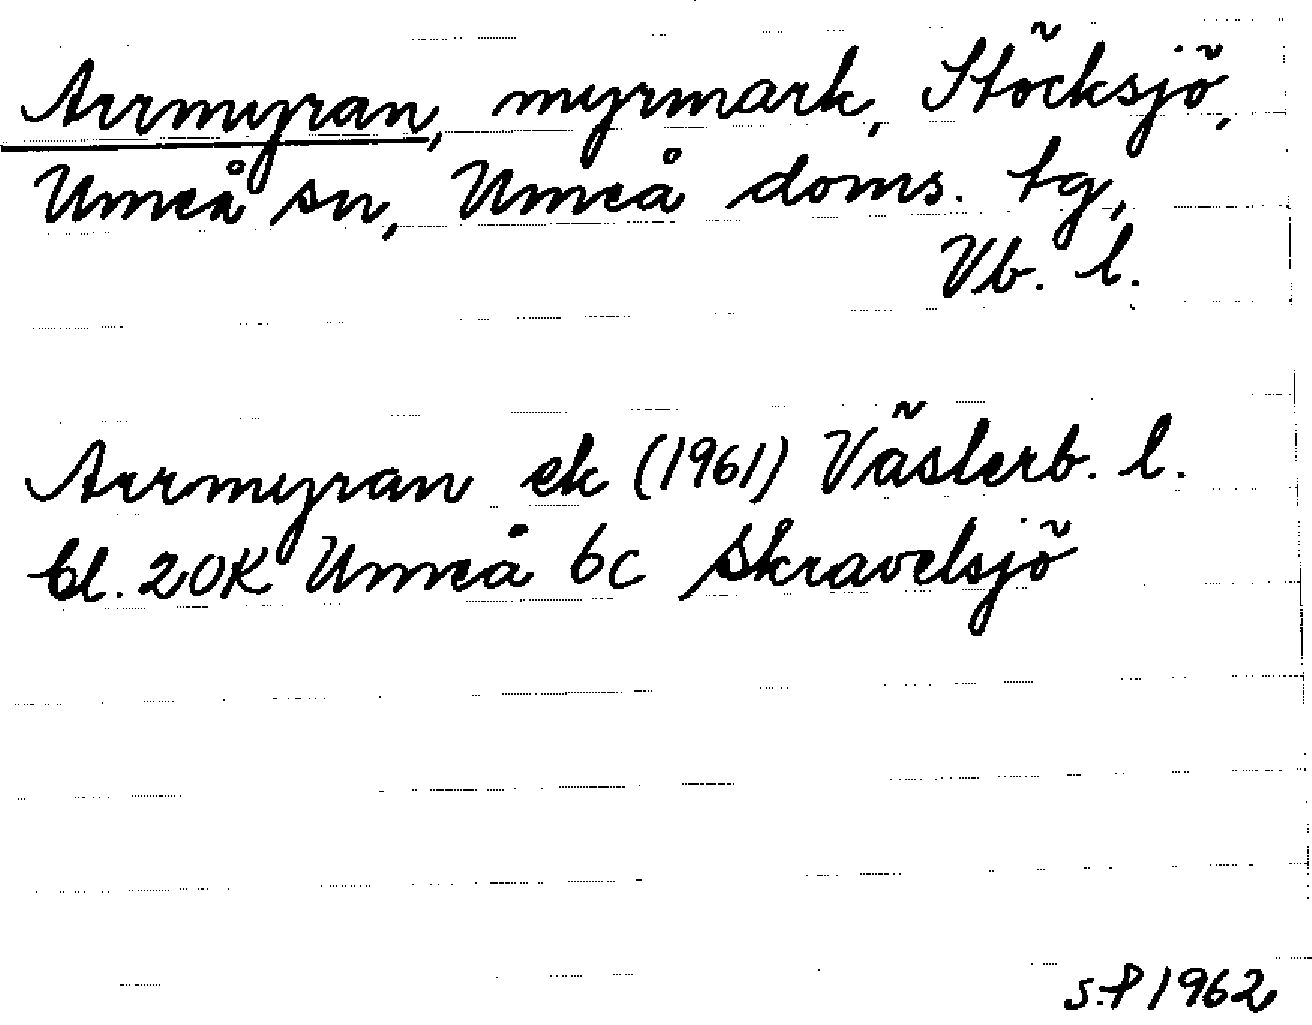 Aurmyran, myrmark, Stöcksjö,
Umeå sn, Umeå doms. tg,
Vb. l.
Aurmyran ek (1961) Västerb. l.
bl. 20K Umeå 6c Skravelsjö
S.P 1962